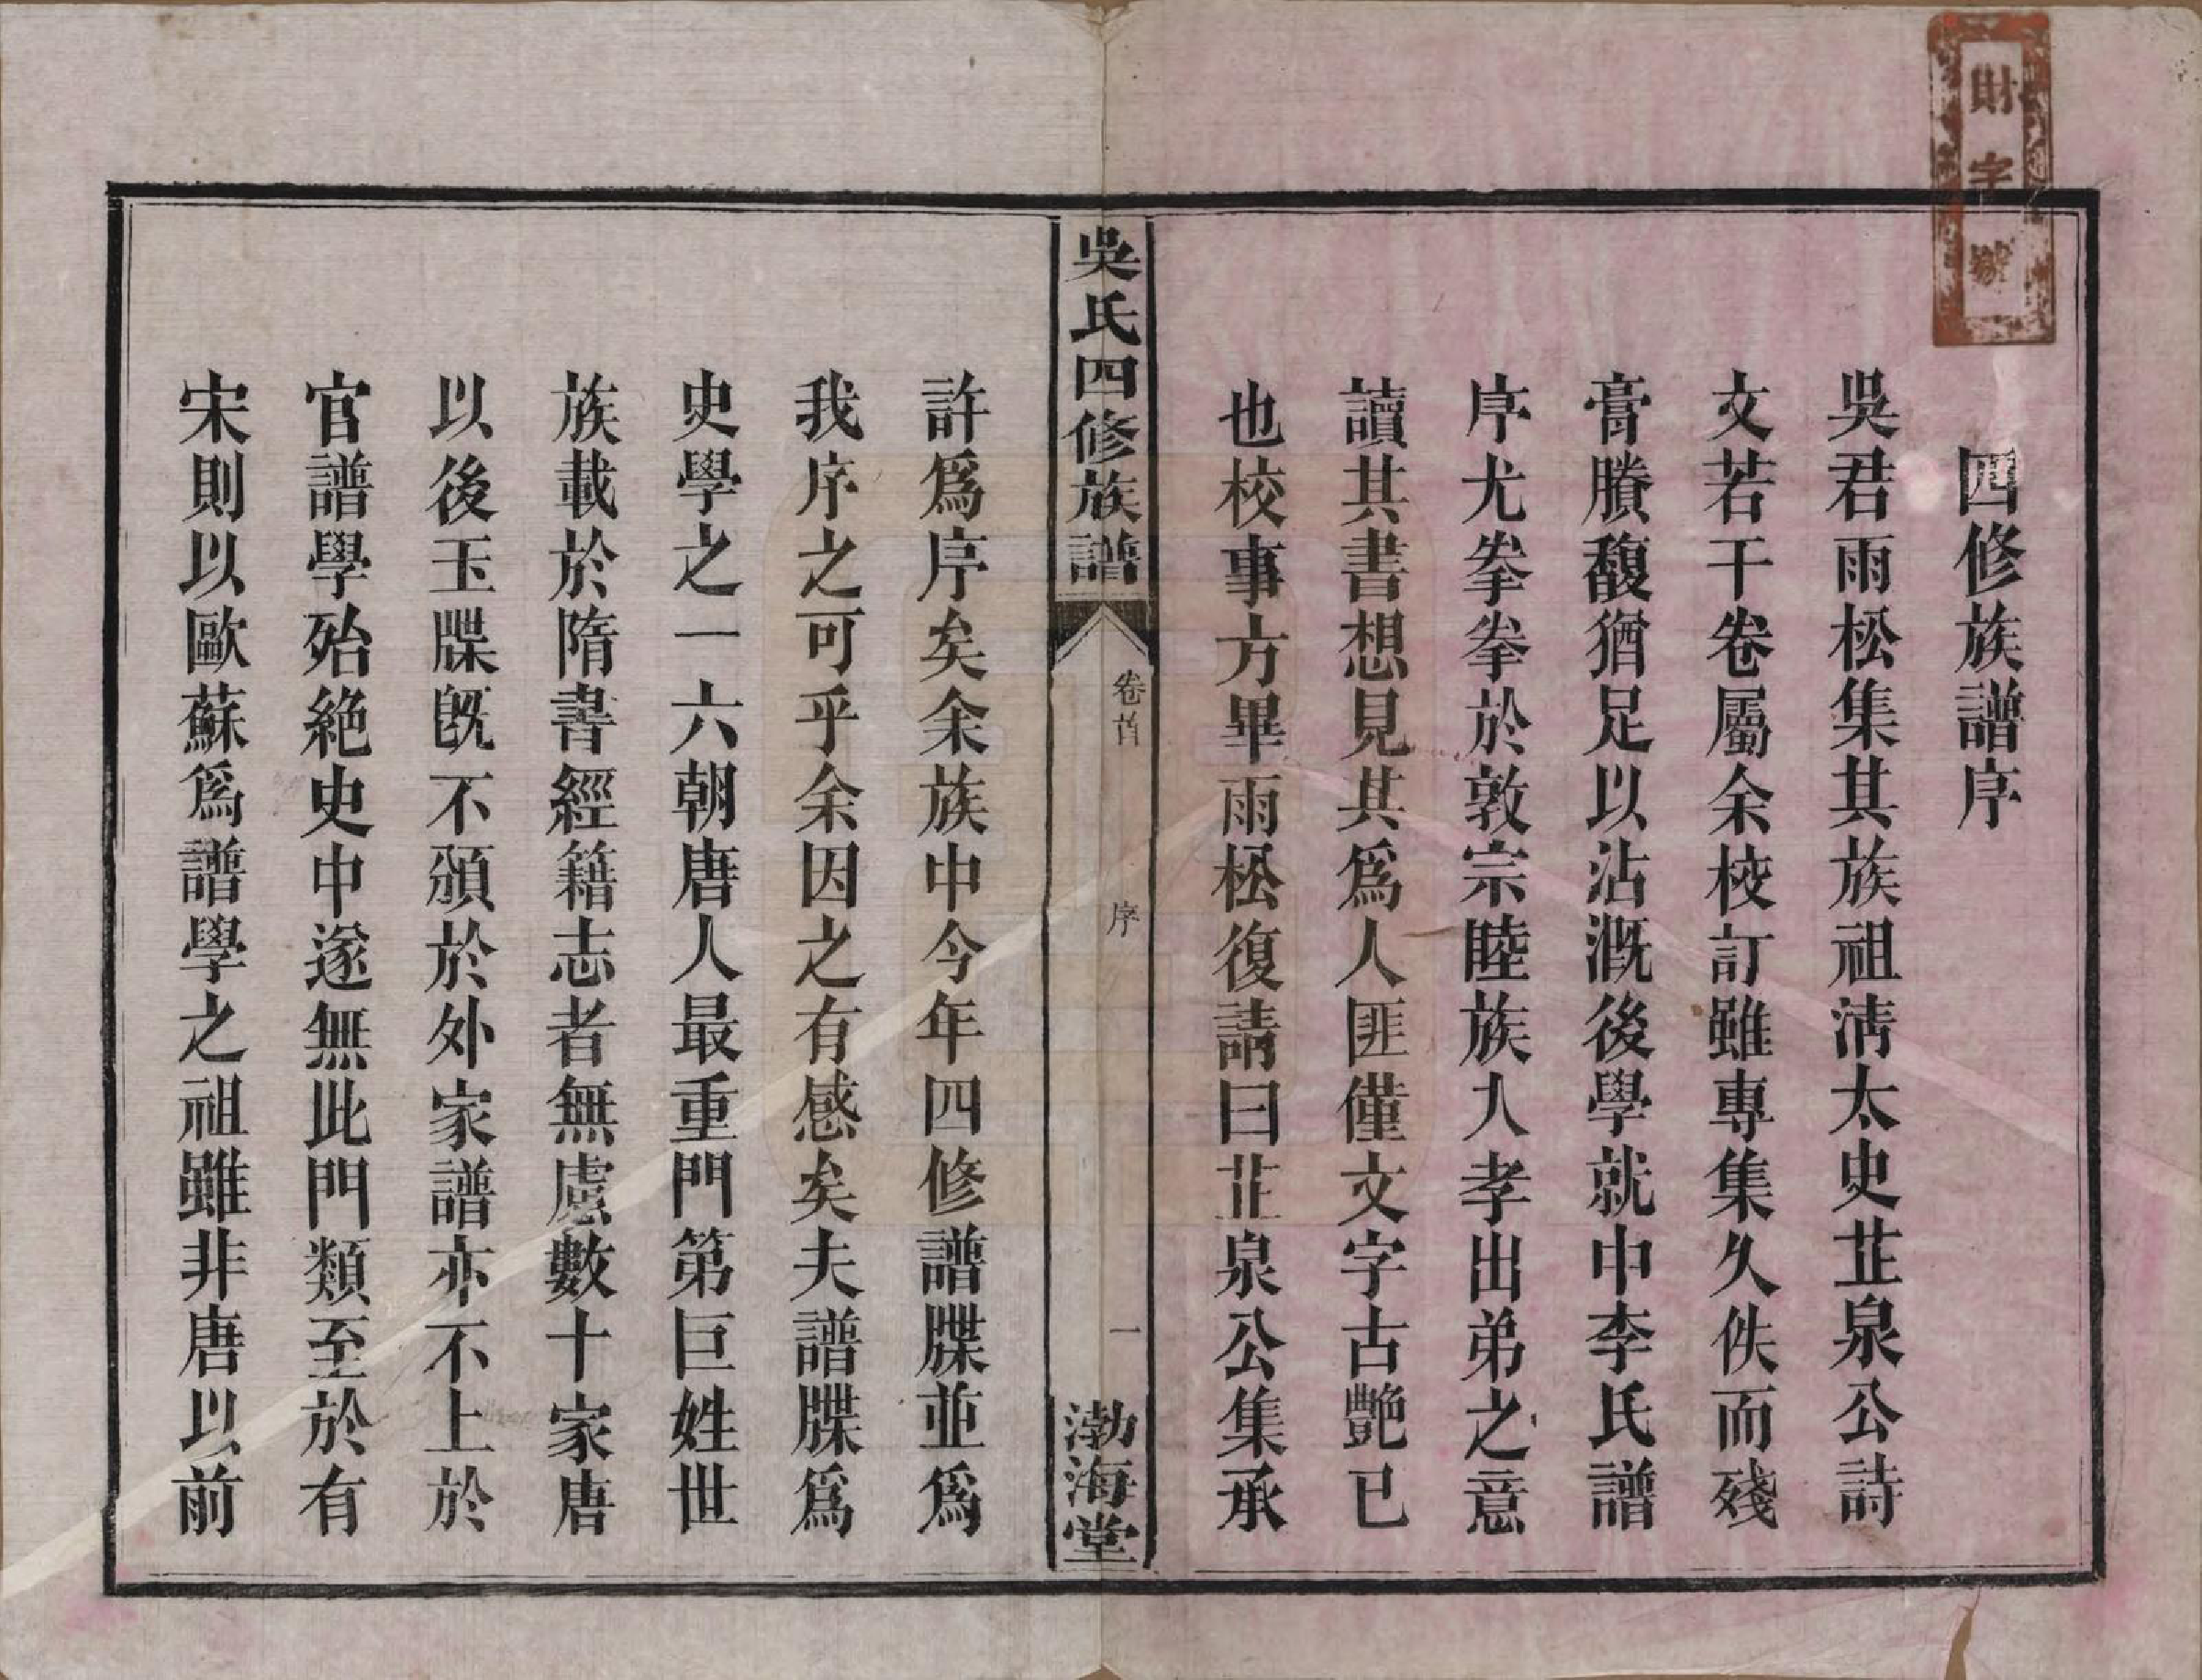 財字號
四修族譜序
吳君雨松集其族祖淸太史芷泉公詩
文若干卷屬余校訂雖專集久佚而殘
膏賸馥猶足以沾漑後學就中李氏譜
序尤拳拳於敦宗睦族入孝出弟之意
讀其書想見其爲人匪僅文字古艷已
也校事方畢雨松復請曰芷泉公集承
吳氏四修族譜
卷首
序
一
渤海堂
許爲序矣余族中今年四修譜牒並爲
我序之可乎余因之有感矣夫譜牒爲
史學之一六朝唐人最重門第巨姓世
族載於隋書經籍志者無慮數十家唐
以後玉牒旣不頒於外家譜亦不上於
官譜學殆絶史中遂無此門類至於有
宋則以歐蘇爲譜學之祖雖非唐以前